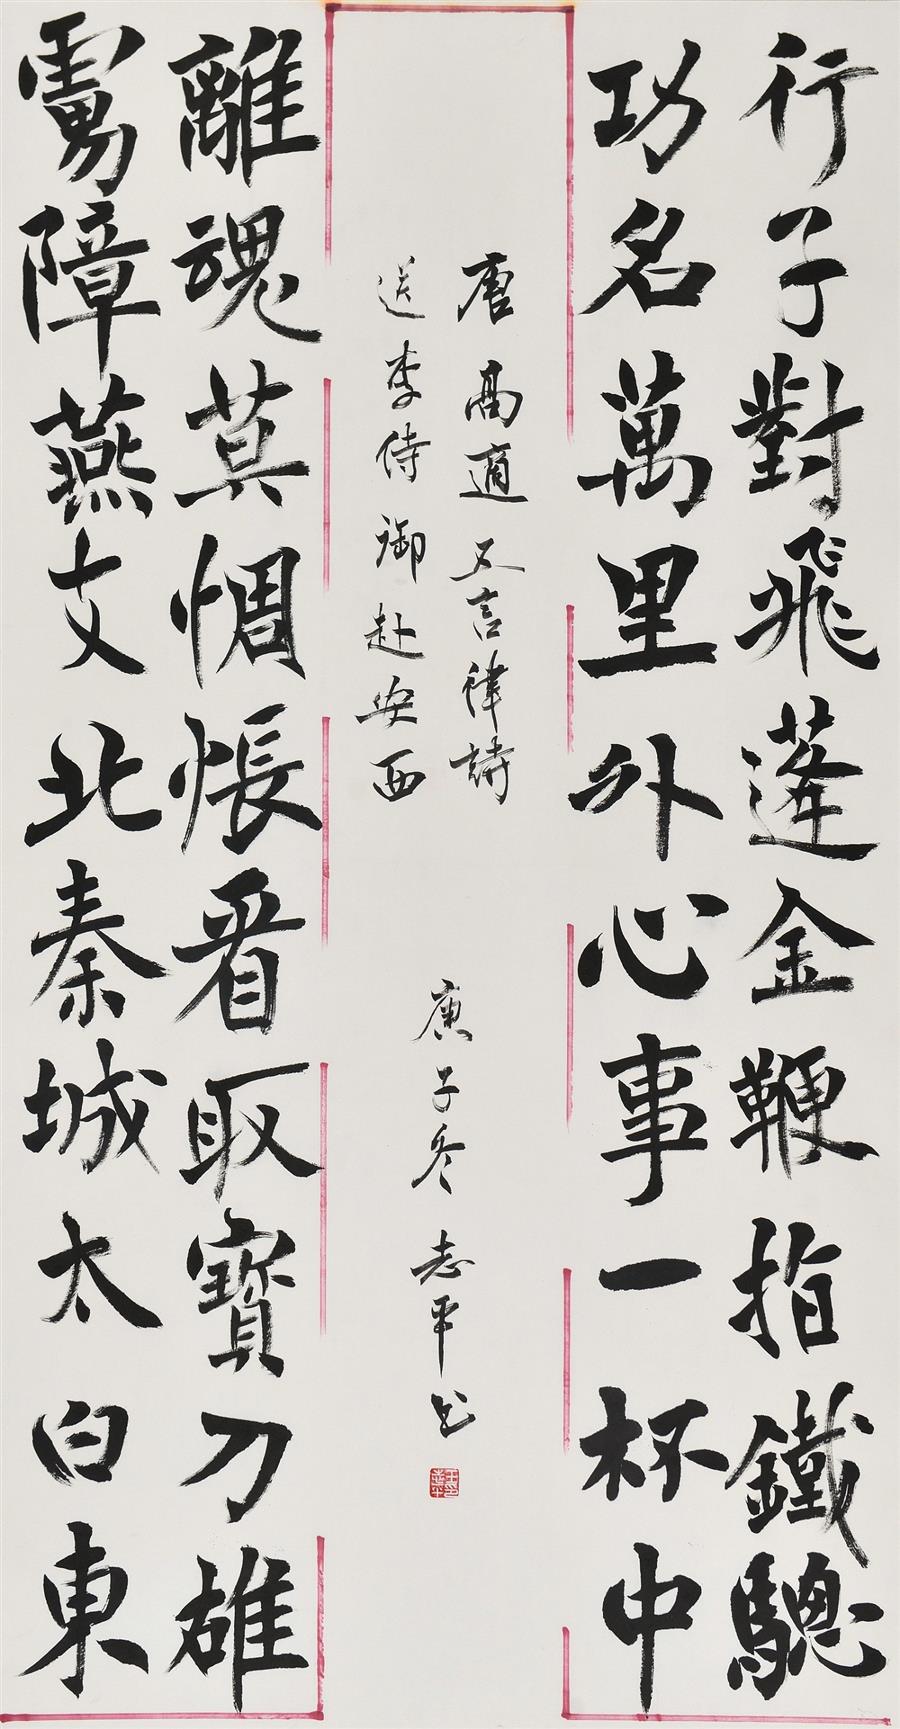 行子對飛蓬金鞭指鐵驄
功名萬里外心事一杯中
虜障燕支北秦城太白東
離魂莫惆悵看取寶刀雄
唐高適五言律詩
送李侍御赴安西
庚子冬志平书